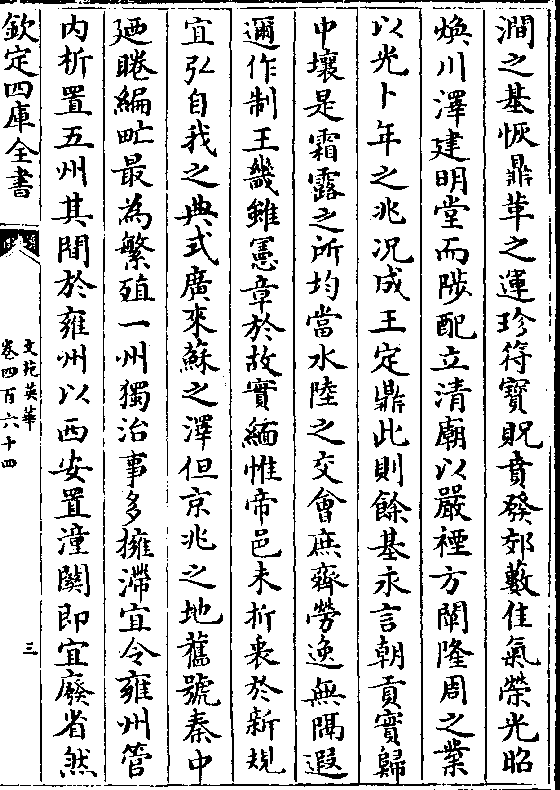 澗之基恢鼎革之運珍符寳貺賁發郊藪佳氣榮光昭
煥川澤建明堂而陟配立清廟以嚴禋方闡隆周之業
以光卜年之兆况成王定鼎此則餘基永言朝貢實歸
中壤是霜露之所均當水陸之交會庶齊勞逸無隔遐
邇作制王畿雖憲章於故實緬惟帝邑未折衷於新規
宜弘自我之典式廣來蘇之澤但京兆之地舊號秦中
廼睠編甿最為繁殖一州獨治事多擁滯宜令雍州管
内析置五州其間於雍州以西安置潼關即宜廢省然
欽定四庫全書
文苑英華
卷四百六十四
三